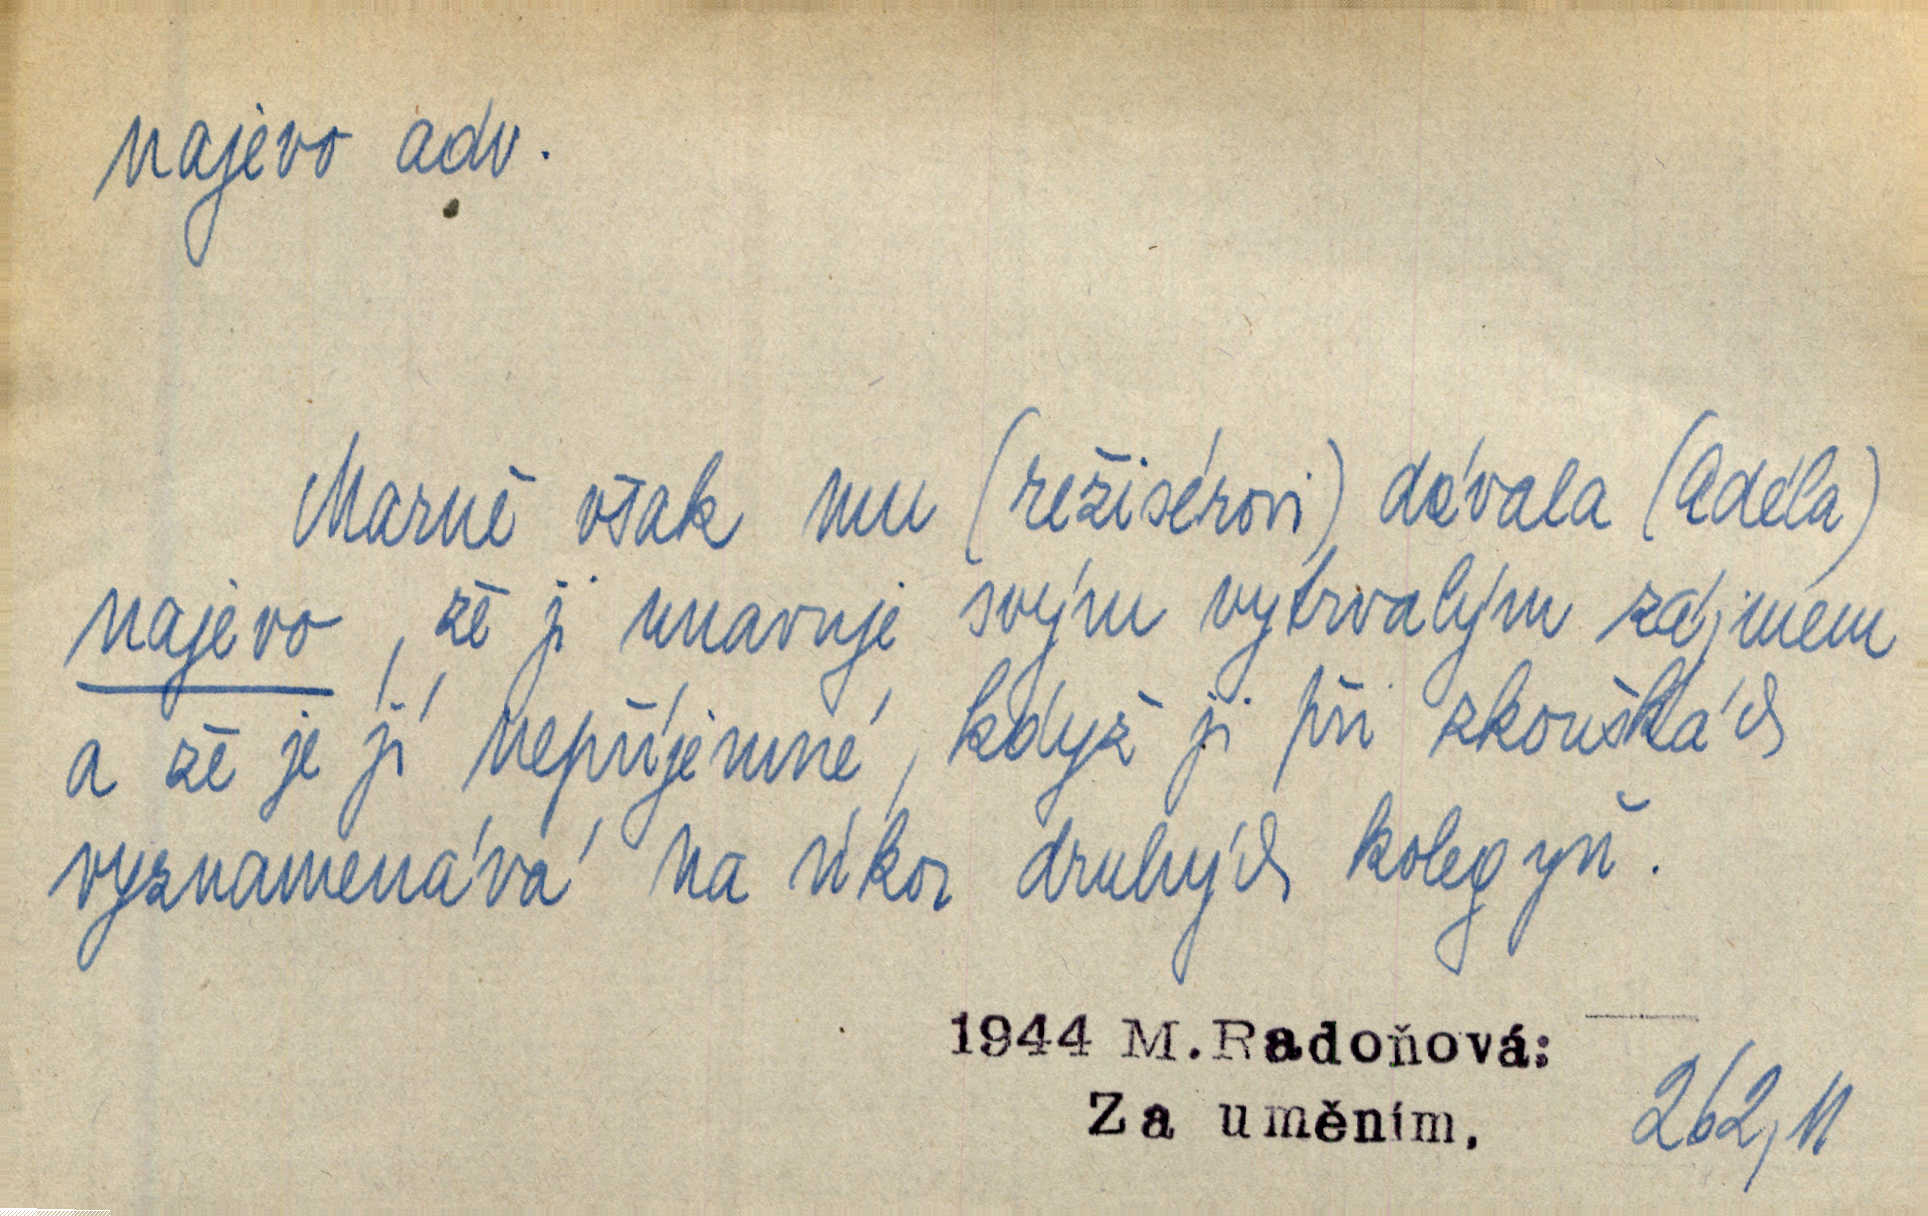 najevo adv.
Marně však mu (režisérovi) dávala (Adéla)
najevo, že ji unavuje svým vytrvalým zájmem
a že je jí nepříjemné, když ji při zkouškách
vyznamenává na úkor druhých kolegyň.
1944 M.Radoňová:
Za uměním.
262,11